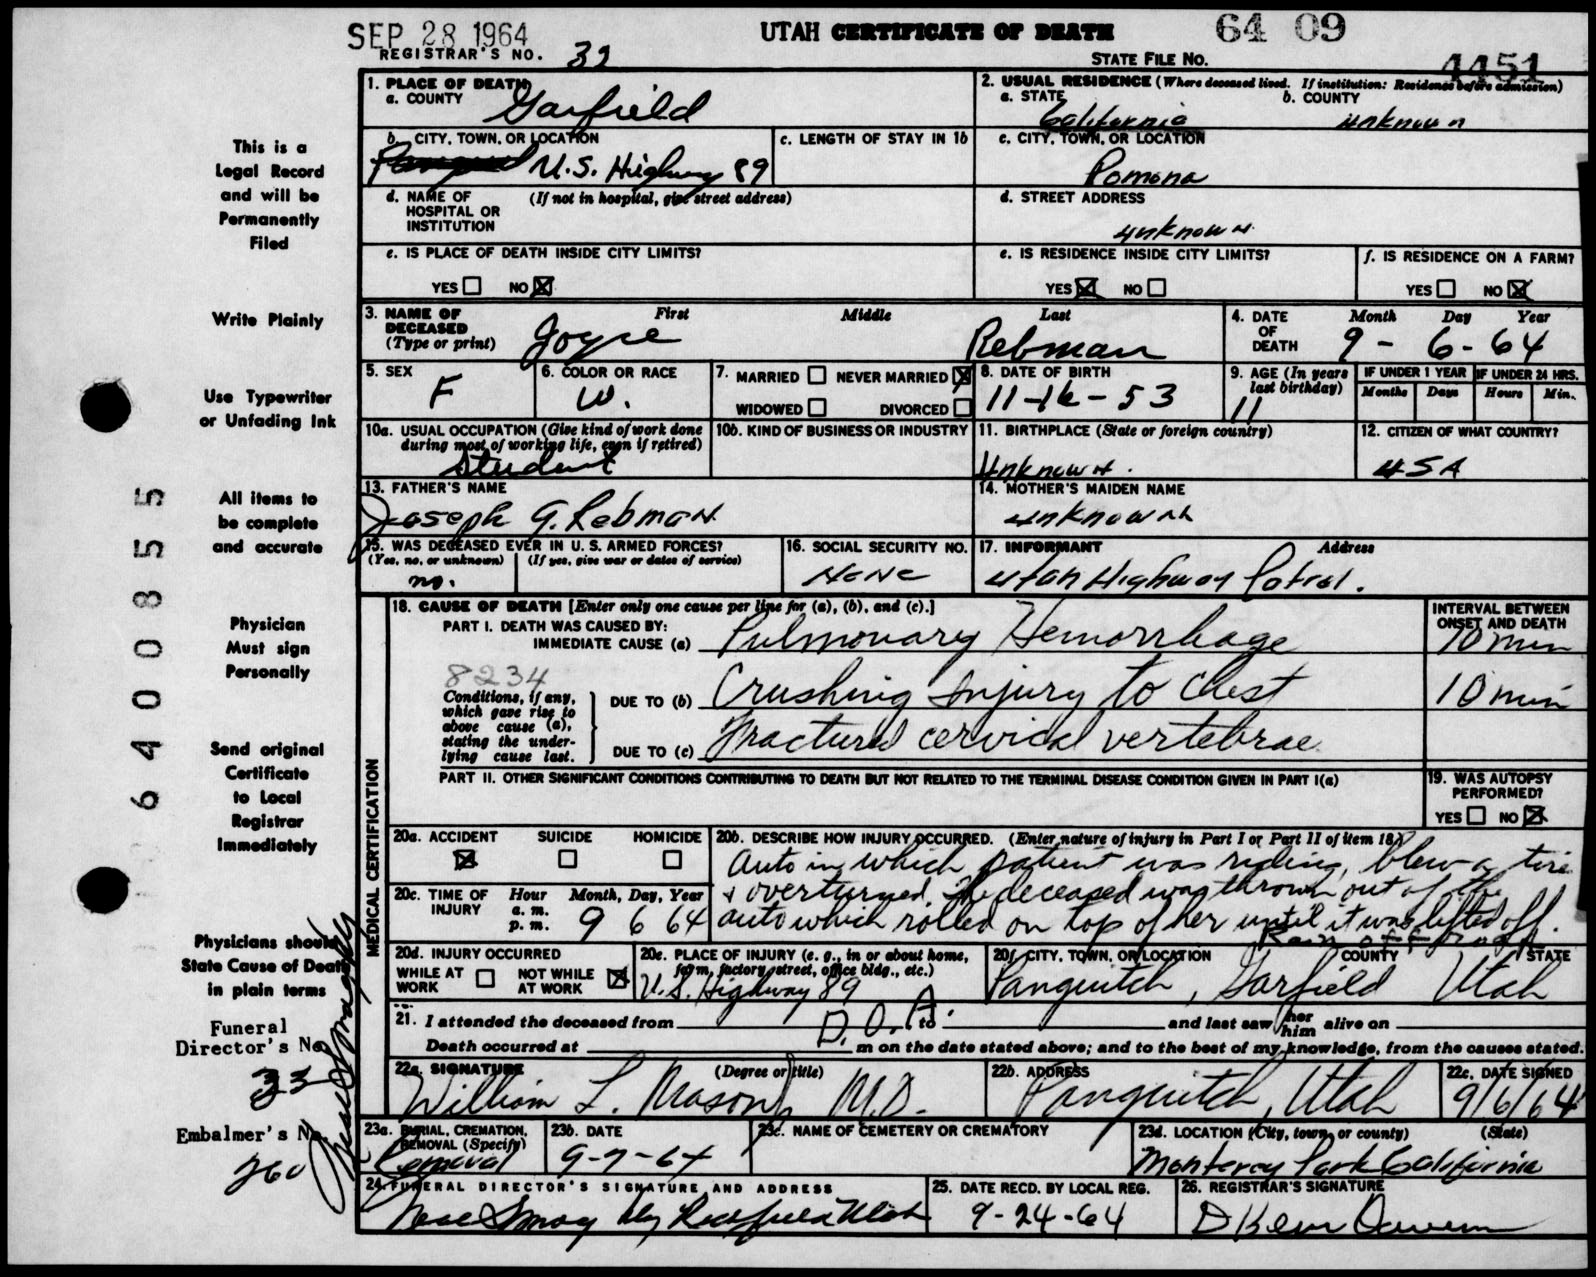 SEP 28 1964
UTAH CERTIFICATE OF DEATH
64 09
REGISTRAR'S NO. 32
STATE FILE NO. 4451
This is a
Legal Record
and will be
Permanently
Filed
Write Plainly
Use Typewriter
or Unfading Ink
All items to
be complete
and accurate
Physician
Must sign
Personally
Send original
Certificate
to Local
Registrar
Immediately
Physicians should
State Cause of Death
in plain terms
Funeral
Director's No.
33
Embalmer's No.
260
64 00855
1. PLACE OF DEATH
a. COUNTY Garfield
2. USUAL RESIDENCE (Where deceased lived. If institution: Residence before admission)
a. STATE California b. COUNTY unknown
b. CITY, TOWN, OR LOCATION U.S. Highway 89
c. LENGTH OF STAY IN 1b
c. CITY, TOWN, OR LOCATION Pomona
d. NAME OF HOSPITAL OR INSTITUTION (If not in hospital, give street address)
d. STREET ADDRESS unknown
e. IS PLACE OF DEATH INSIDE CITY LIMITS?
YES ☐ NO ☒
e. IS RESIDENCE INSIDE CITY LIMITS?
YES ☒ NO ☐
f. IS RESIDENCE ON A FARM?
YES ☐ NO ☒
3. NAME OF DECEASED (Type or print) First Middle Last
Joyce Rebman
4. DATE OF DEATH Month Day Year
9 - 6 - 64
5. SEX F
6. COLOR OR RACE W.
7. MARRIED ☐ NEVER MARRIED ☒
WIDOWED ☐ DIVORCED ☐
8. DATE OF BIRTH 11-16-53
9. AGE (In years last birthday) 11
IF UNDER 1 YEAR Months Days
IF UNDER 24 HRS. Hours Min.
10a. USUAL OCCUPATION (Give kind of work done during most of working life, even if retired)
Student
10b. KIND OF BUSINESS OR INDUSTRY
11. BIRTHPLACE (State or foreign country)
Unknown.
12. CITIZEN OF WHAT COUNTRY?
USA
13. FATHER'S NAME
Joseph G. Rebman
14. MOTHER'S MAIDEN NAME
unknown
15. WAS DECEASED EVER IN U. S. ARMED FORCES?
(Yes, no, or unknown) (If yes, give war or dates of service)
no.
16. SOCIAL SECURITY NO.
None
17. INFORMANT Address
Utah Highway Patrol.
MEDICAL CERTIFICATION
18. CAUSE OF DEATH [Enter only one cause per line for (a), (b), and (c).]
PART I. DEATH WAS CAUSED BY:
IMMEDIATE CAUSE (a) Pulmonary Hemorrhage
INTERVAL BETWEEN ONSET AND DEATH
10 min
8234
Conditions, if any, which gave rise to above cause (a), stating the underlying cause last.
DUE TO (b) Crushing injury to chest
10 min
DUE TO (c) Fractured cervical vertebrae
PART II. OTHER SIGNIFICANT CONDITIONS CONTRIBUTING TO DEATH BUT NOT RELATED TO THE TERMINAL DISEASE CONDITION GIVEN IN PART I(a)
19. WAS AUTOPSY PERFORMED?
YES ☐ NO ☒
20a. ACCIDENT ☒ SUICIDE ☐ HOMICIDE ☐
20b. DESCRIBE HOW INJURY OCCURRED. (Enter nature of injury in Part I or Part II of item 18.)
Auto in which patient was riding, blew a tire
& overturned. The deceased was thrown out of the
auto which rolled on top of her until it was lifted off.
Ran off road
20c. TIME OF INJURY Hour a. m. p. m. Month, Day, Year
9 6 64
20d. INJURY OCCURRED
WHILE AT WORK ☐ NOT WHILE AT WORK ☒
20e. PLACE OF INJURY (e. g., in or about home, farm, factory, street, office bldg., etc.)
U.S. Highway 89
20f. CITY, TOWN, OR LOCATION COUNTY STATE
Panguitch, Garfield Utah
21. I attended the deceased from D.O.A. to and last saw her him alive on
Death occurred at m on the date stated above; and to the best of my knowledge, from the causes stated.
22a. SIGNATURE (Degree or title)
William L. Mason, M.D.
22b. ADDRESS
Panguitch, Utah
22c. DATE SIGNED
9/6/64
23a. BURIAL, CREMATION, REMOVAL (Specify)
Removal
23b. DATE
9-7-64
23c. NAME OF CEMETERY OR CREMATORY
23d. LOCATION (City, town, or county) (State)
Monterey Park California
24. FUNERAL DIRECTOR'S SIGNATURE AND ADDRESS
Richfield Utah
25. DATE RECD. BY LOCAL REG.
9-24-64
26. REGISTRAR'S SIGNATURE